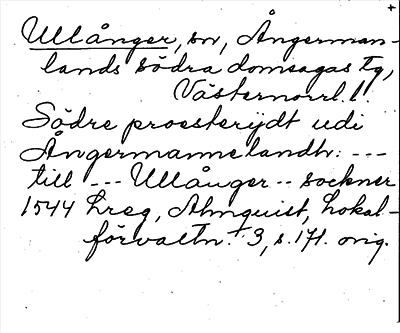 +
Ullånger, sn, Ångerman-
lands södra domsagas tg,
Västernorrl. l.
Södre proesterijdt udi
Ångermannelandh: ---
till --- Ullånger -- sockner
1544 hreg, Almquist, Lokal-
förvaltn. + 3, s. 171. orig.